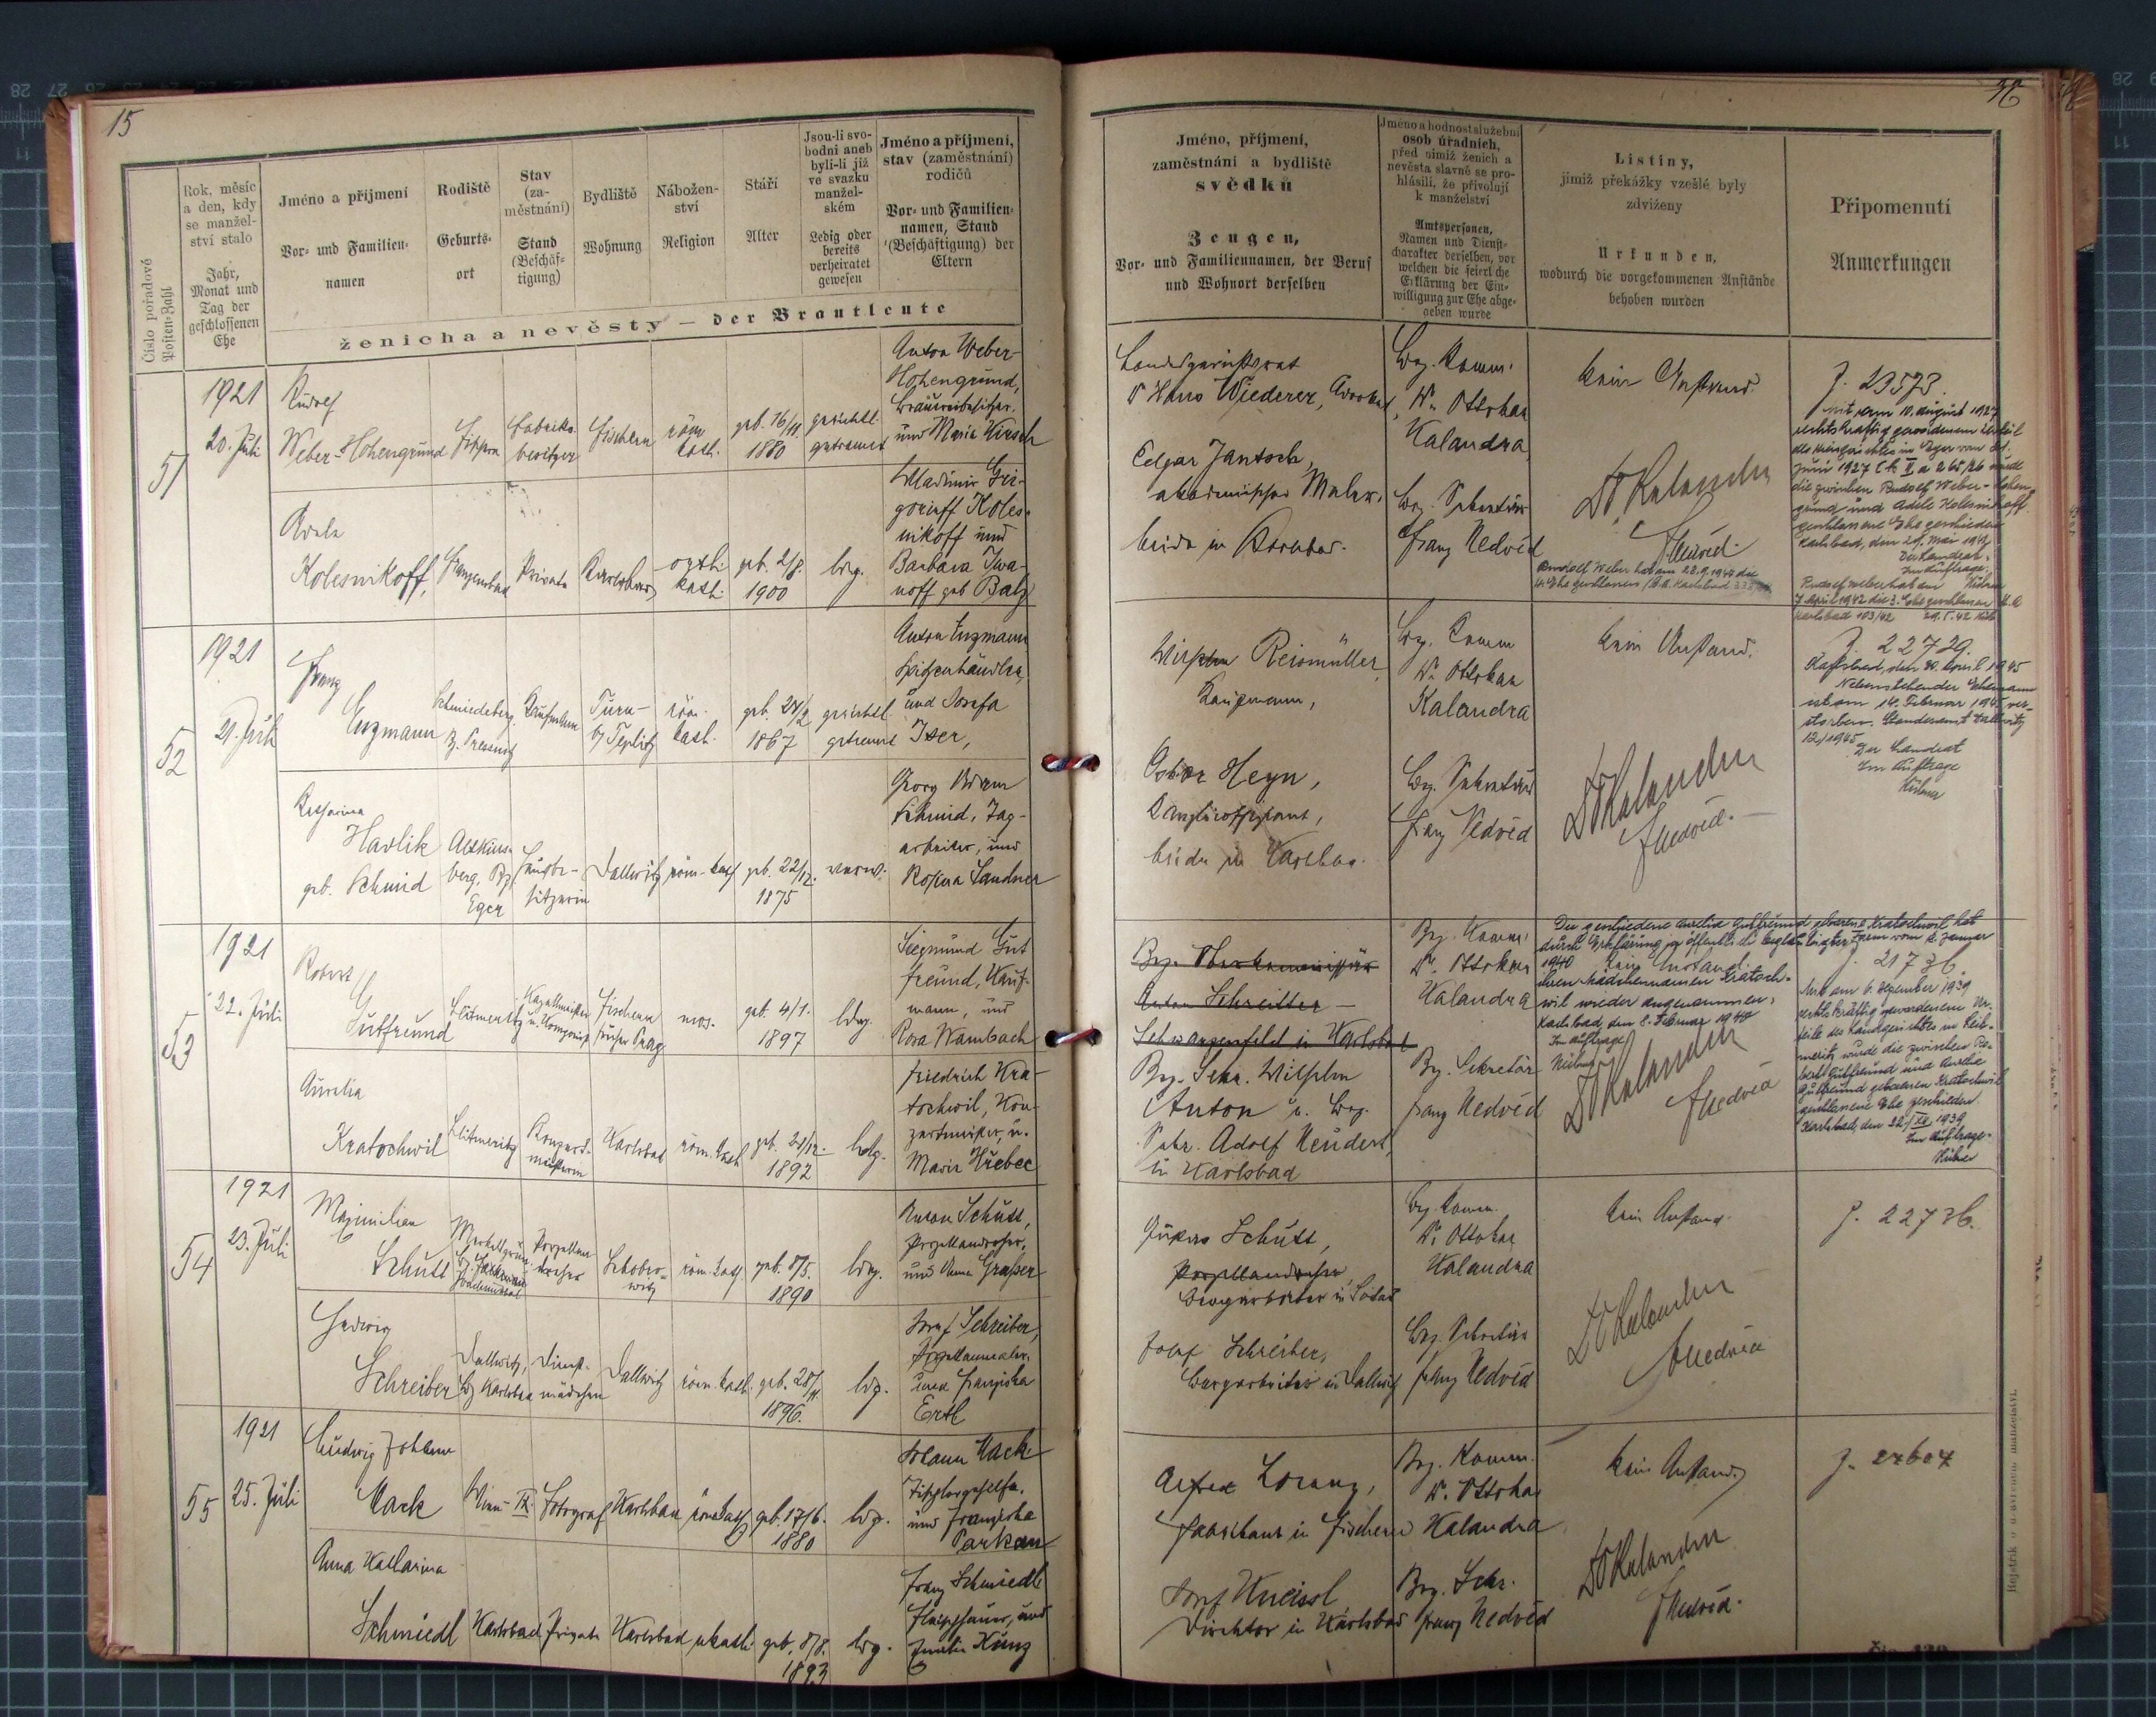 15
Číslo pořadové
Posten-Zahl
Rok, měsíc
a den, kdy
se manžel-
ství stalo
Jahr,
Monat und
Tag der
geschlossenen
Ehe
Jméno a příjmení
Vor- und Familien-
namen
Rodiště
Geburts-
ort
Stav
(za-
městnání)
Stand
(Beschäf-
tigung)
Bydliště
Wohnung
Nábožen-
ství
Religion
Stáří
Alter
Jsou-li svo-
bodni aneb
byli-li již
ve svazku
manžel-
ském
Ledig oder
bereits
verheiratet
gewesen
Jméno a příjmení,
stav (zaměstnání)
rodičů
Vor- und Familien-
namen, Stand
(Beschäftigung) der
Eltern
ženicha a nevěsty — der Brautleute
51
1921
20. Juli
Rudolf
Weber-Hohengrund
Fabriks-
besitzer
Fischern
röm.
kath.
geb. 16/11.
1880
gerichtl.
getrennt
Anton Weber-
Hohengrund,
Brauereibesitzer,
und Maria Kirsch
Adele
Kolesnikoff,
Franzensbad
Private
Karlsbad
orth.
kath.
geb. 2/8.
1900
ledig.
Wladimir Gri-
gorieff Koles-
nikoff und
Barbara Iwa-
noff geb. Balz
52
1921
21. Juli
Franz
Enzmann
Schmiedeberg,
Bz. Pressnitz
Kaufmann
Turn-
bz Teplitz
röm.
kath.
geb. 24/2
1867
gerichtl.
getrennt
Anton Enzmann
Spitzenhändler,
und Josefa
Iser,
Katharina
Havlik
geb. Schmid
Altkins-
berg, Bz.
Eger
Hausbe-
sitzerin
Dallwitz
röm. kath
geb. 22/12.
1875
verw.
Georg Adam
Schmid, Tag-
arbeiter, und
Rosina Sandner
53
1921
22. Juli
Robert
Gutfreund
Leitmeritz
Kapellmeister
u. Komponist
Fischern
früher Prag
mos.
geb. 4/1.
1897
ledig.
Siegmund Gut
freund, Kauf-
mann, und
Rosa Wambach
Aurelia
Kratochwil
Leitmeritz
Konzert-
meisterin
Karlsbad
röm. kath
geb. 24/12.
1892
ledig.
Friedrich Kra-
tochwil, Kon-
zertmeister, u.
Marie Hřebec
54
1921
23. Juli
Maximilian
Schuss
Porzellan
dreher
Schobro-
witz
röm. kath
geb. 8/5.
1890
ledig.
Anton Schuss,
Porzellandreher,
und Anna Grasser
Hedwig
Schreiber
Dallwitz,
Bz Karlsbad
Dienst-
mädchen
Dallwitz
röm. kath.
geb. 28/11
1896.
ledig.
Josef Schreiber,
Porzellanmaler,
und Franziska
Ertl
55
1921
25. Juli
Ludwig Johann
Mack
Wien-IX.
Fotograf
Karlsbad
röm. kath
geb. 17/6.
1880
ledig.
Johann Mack
Tischlergehilfe,
und Franziska
Parkan
Anna Katharina
Schmiedl
Karlsbad
Private
Karlsbad
akath.
geb. 8/8.
1893
ledig.
Franz Schmiedl
Fleischhauer, und
Emilie Kunz
Jméno, příjmení,
zaměstnání a bydliště
svědků
Zeugen,
Vor- und Familiennamen, der Beruf
und Wohnort derselben
Jméno a hodnost služební
osob úředních,
před nimiž ženich a
nevěsta slavně se pro-
hlásili, že přivolují
k manželství
Amtspersonen,
Namen und Dienst-
charakter derselben, vor
welchen die feierliche
Erklärung der Ein-
willigung zur Ehe abge-
geben wurde
Listiny,
jimiž překážky vzešlé byly
zdviženy
Urkunden,
wodurch die vorgekommenen Anstände
behoben wurden
Připomenutí
Anmerkungen
Landsgerichtsrat
Dr Hans Wiederer, Advokat,
Edgar Jantsch,
akademischer Maler,
beide in Karlsbad.
Bez. Komm.
Dr. Ottokar
Kalandra
Bez. Sekretär
Franz Nedvěd
kein Anstand.
Dr Kalandra
F Nedvěd.
Rudolf Weber hat am 22.9.1944 die
4. Ehe geschlossen
Z. 23573
Mit dem 10. August 1927
rechtskräftig gewordenem Urteil
des Kreisgerichtes in Eger vom
Juni 1927 Ck II a 265/26 wurde
die zwischen Rudolf Weber-Hohen-
grund und Adele Kolesnikoff
geschlossene Ehe geschieden
Karlsbad, den 29. Mai 1942
Der Landrat.
Im Auftrage:
Rudolf Weber hat am
7. April 1942 die 3. Ehe geschlossen
Karlsbad 103/42
Wilhelm Reismüller,
Kaufmann,
Oskar Heyn,
Kanzleioffiziant,
beide in Karlsbad.
Bez. Komm
Dr. Ottokar
Kalandra
Bez. Sekretär
Franz Nedvěd
kein Anstand.
Dr Kalandra
F Nedvěd.
Z. 22729.
Karlsbad, den 20. April 1945
Nebenstehender Ehemann
ist am 14. Februar 1945 ver-
storben. Standesamt Dallwitz
12/1945
Der Landrat
Im Auftrage
Bez. Oberkommissär
Anton Schreitter —
Schwarzenfeld in Karlsbad
Bez. Sekr. Wilhelm
Anton u. Bez.
Sekr. Adolf Neudert,
in Karlsbad
Bez. Komm.
Dr. Ottokar
Kalandra
Bez. Sekretär
Franz Nedvěd
Die geschiedene Aurelia Gutfreund geborene Kratochwil hat
durch Erklärung in öffentlich beglaubigter Form vom 2. Januar
1940
kein Anstand.
ihren Mädchennamen Kratoch-
wil wieder angenommen.
Karlsbad, den 2. Februar 1940
Im Auftrage
Dr Kalandra
F Nedvěd
Z. 21736.
Mit am 6. Dezember 1939
rechtskräftig gewordenem Ur-
teile des Landgerichtes in Leit-
meritz wurde die zwischen Ro-
bert Gutfreund und Aurelia
Gutfreund geborenen Kratochwil
geschlossene Ehe geschieden.
Karlsbad, den 22/XII 1939
Im Auftrage.
Schuss,
Porzellandreher,
Bergarbeiter in Sodau
Josef Schreiber,
Bergarbeiter in Dallwitz
Bez Komm.
Dr. Ottokar
Kalandra
Bez. Sekretär
Franz Nedvěd
kein Anstand.
Dr Kalandra
F Nedvěd
Z. 22736.
Alfred Lorenz,
Fabrikant in Fischern
Josef Kneissl
Direktor in Karlsbad
Bez. Komm.
Dr. Ottokar
Kalandra
Bez. Sekr.
Franz Nedvěd
kein Anstand
Dr Kalandra
F Nedvěd.
Z. 22607